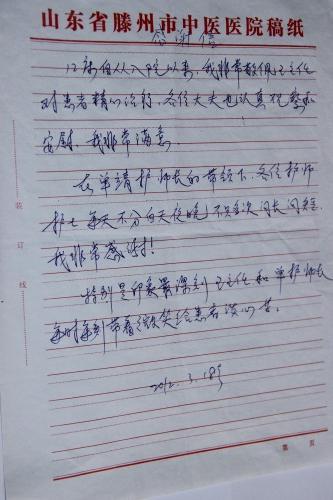 山东省滕州市中医医院稿纸
感谢信
12床自从入院以来,我非常敬佩王主任
对患者精心治疗,各位大夫也认真观察和
安慰,我非常满意
在单靖护师长的带领下,各位护师
护士每天不分白天夜晚不
我非常感谢!
特别是印象最深刻王主任和单护师长
每时每刻带着微笑给患者谈心
2012.3.18号
装订线
第 页